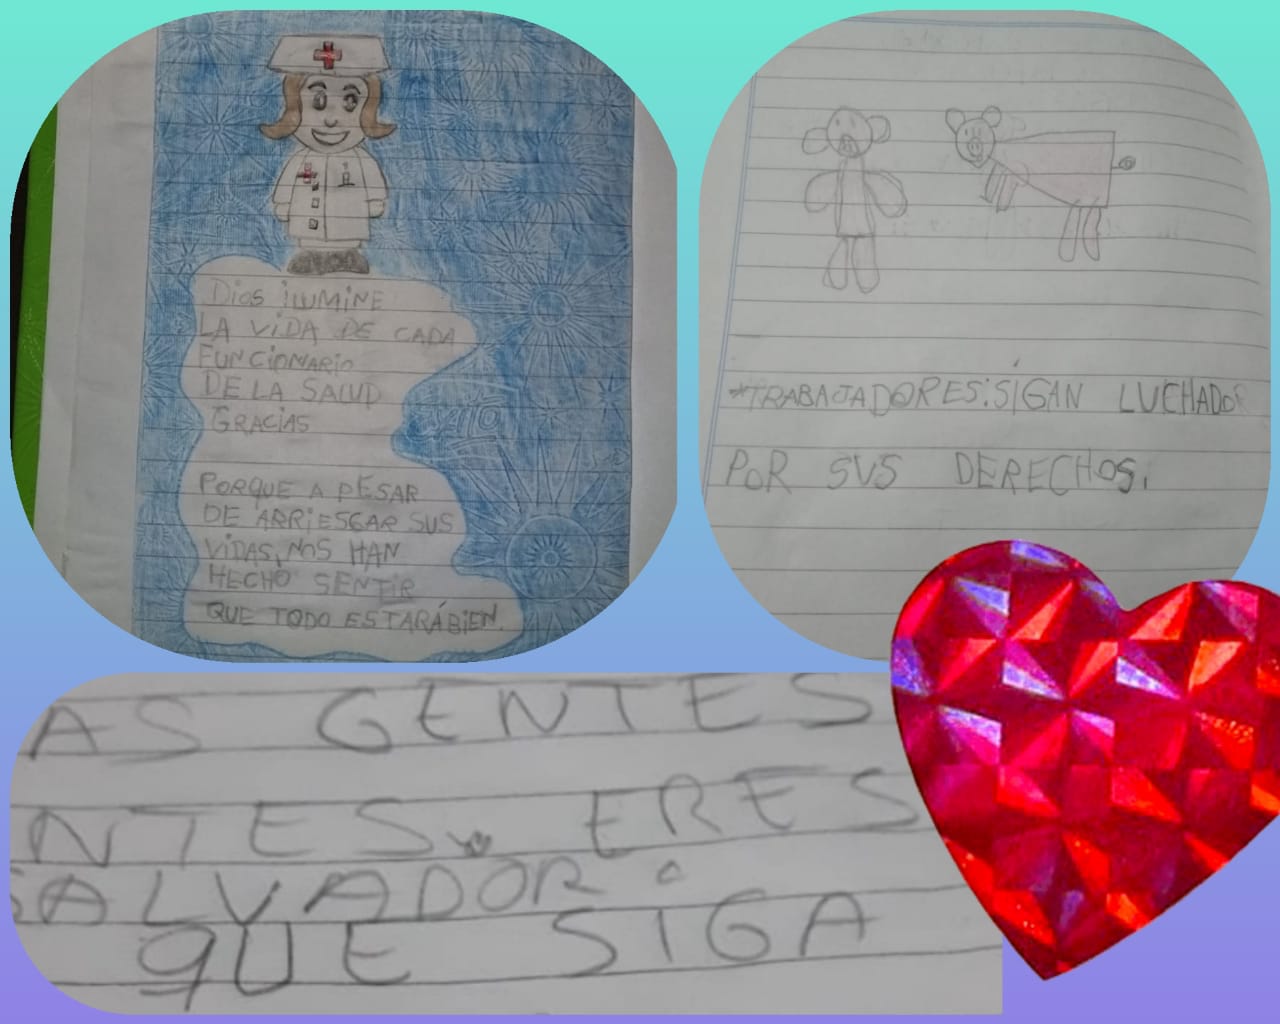 Dios iLUMiNE
LA ViDA DE CADA
FUNCiONARio
DE LA SALUD
GRACiAS
PORQUE A PESAR
DE ARRiESGAR SUS
ViDAS, NOS HAN
HECHO SENTiR
QUE TODO ESTARÁ BIEN.
*TRABAJADORES: SIGAN LUCHADO
POR SUS DERECHOS.
AS GENTES
NTES. ERES
SALVADOR.
QUE SIGA